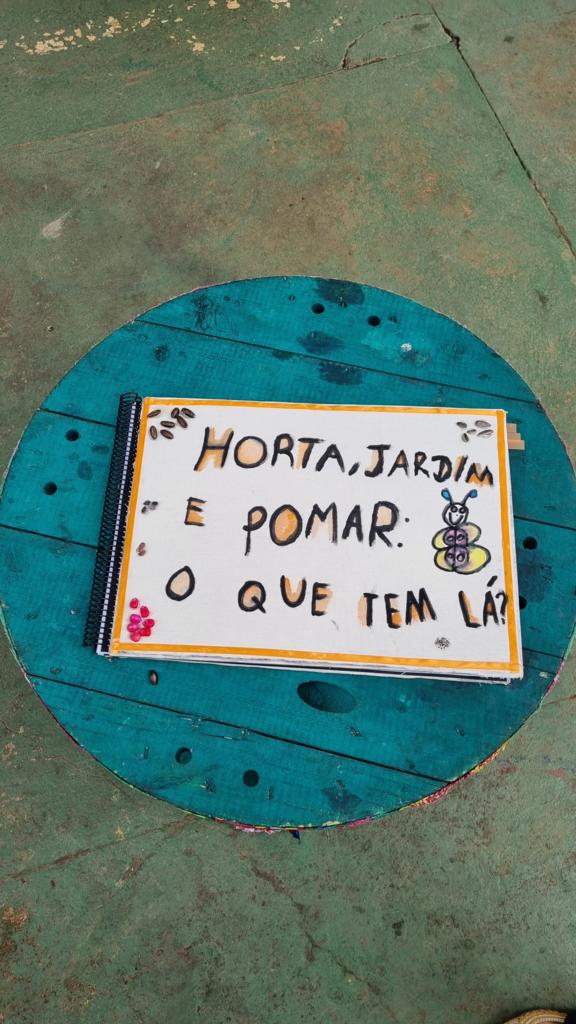 HORTA, JARDIM
E POMAR:
O QUE TEM LÁ?